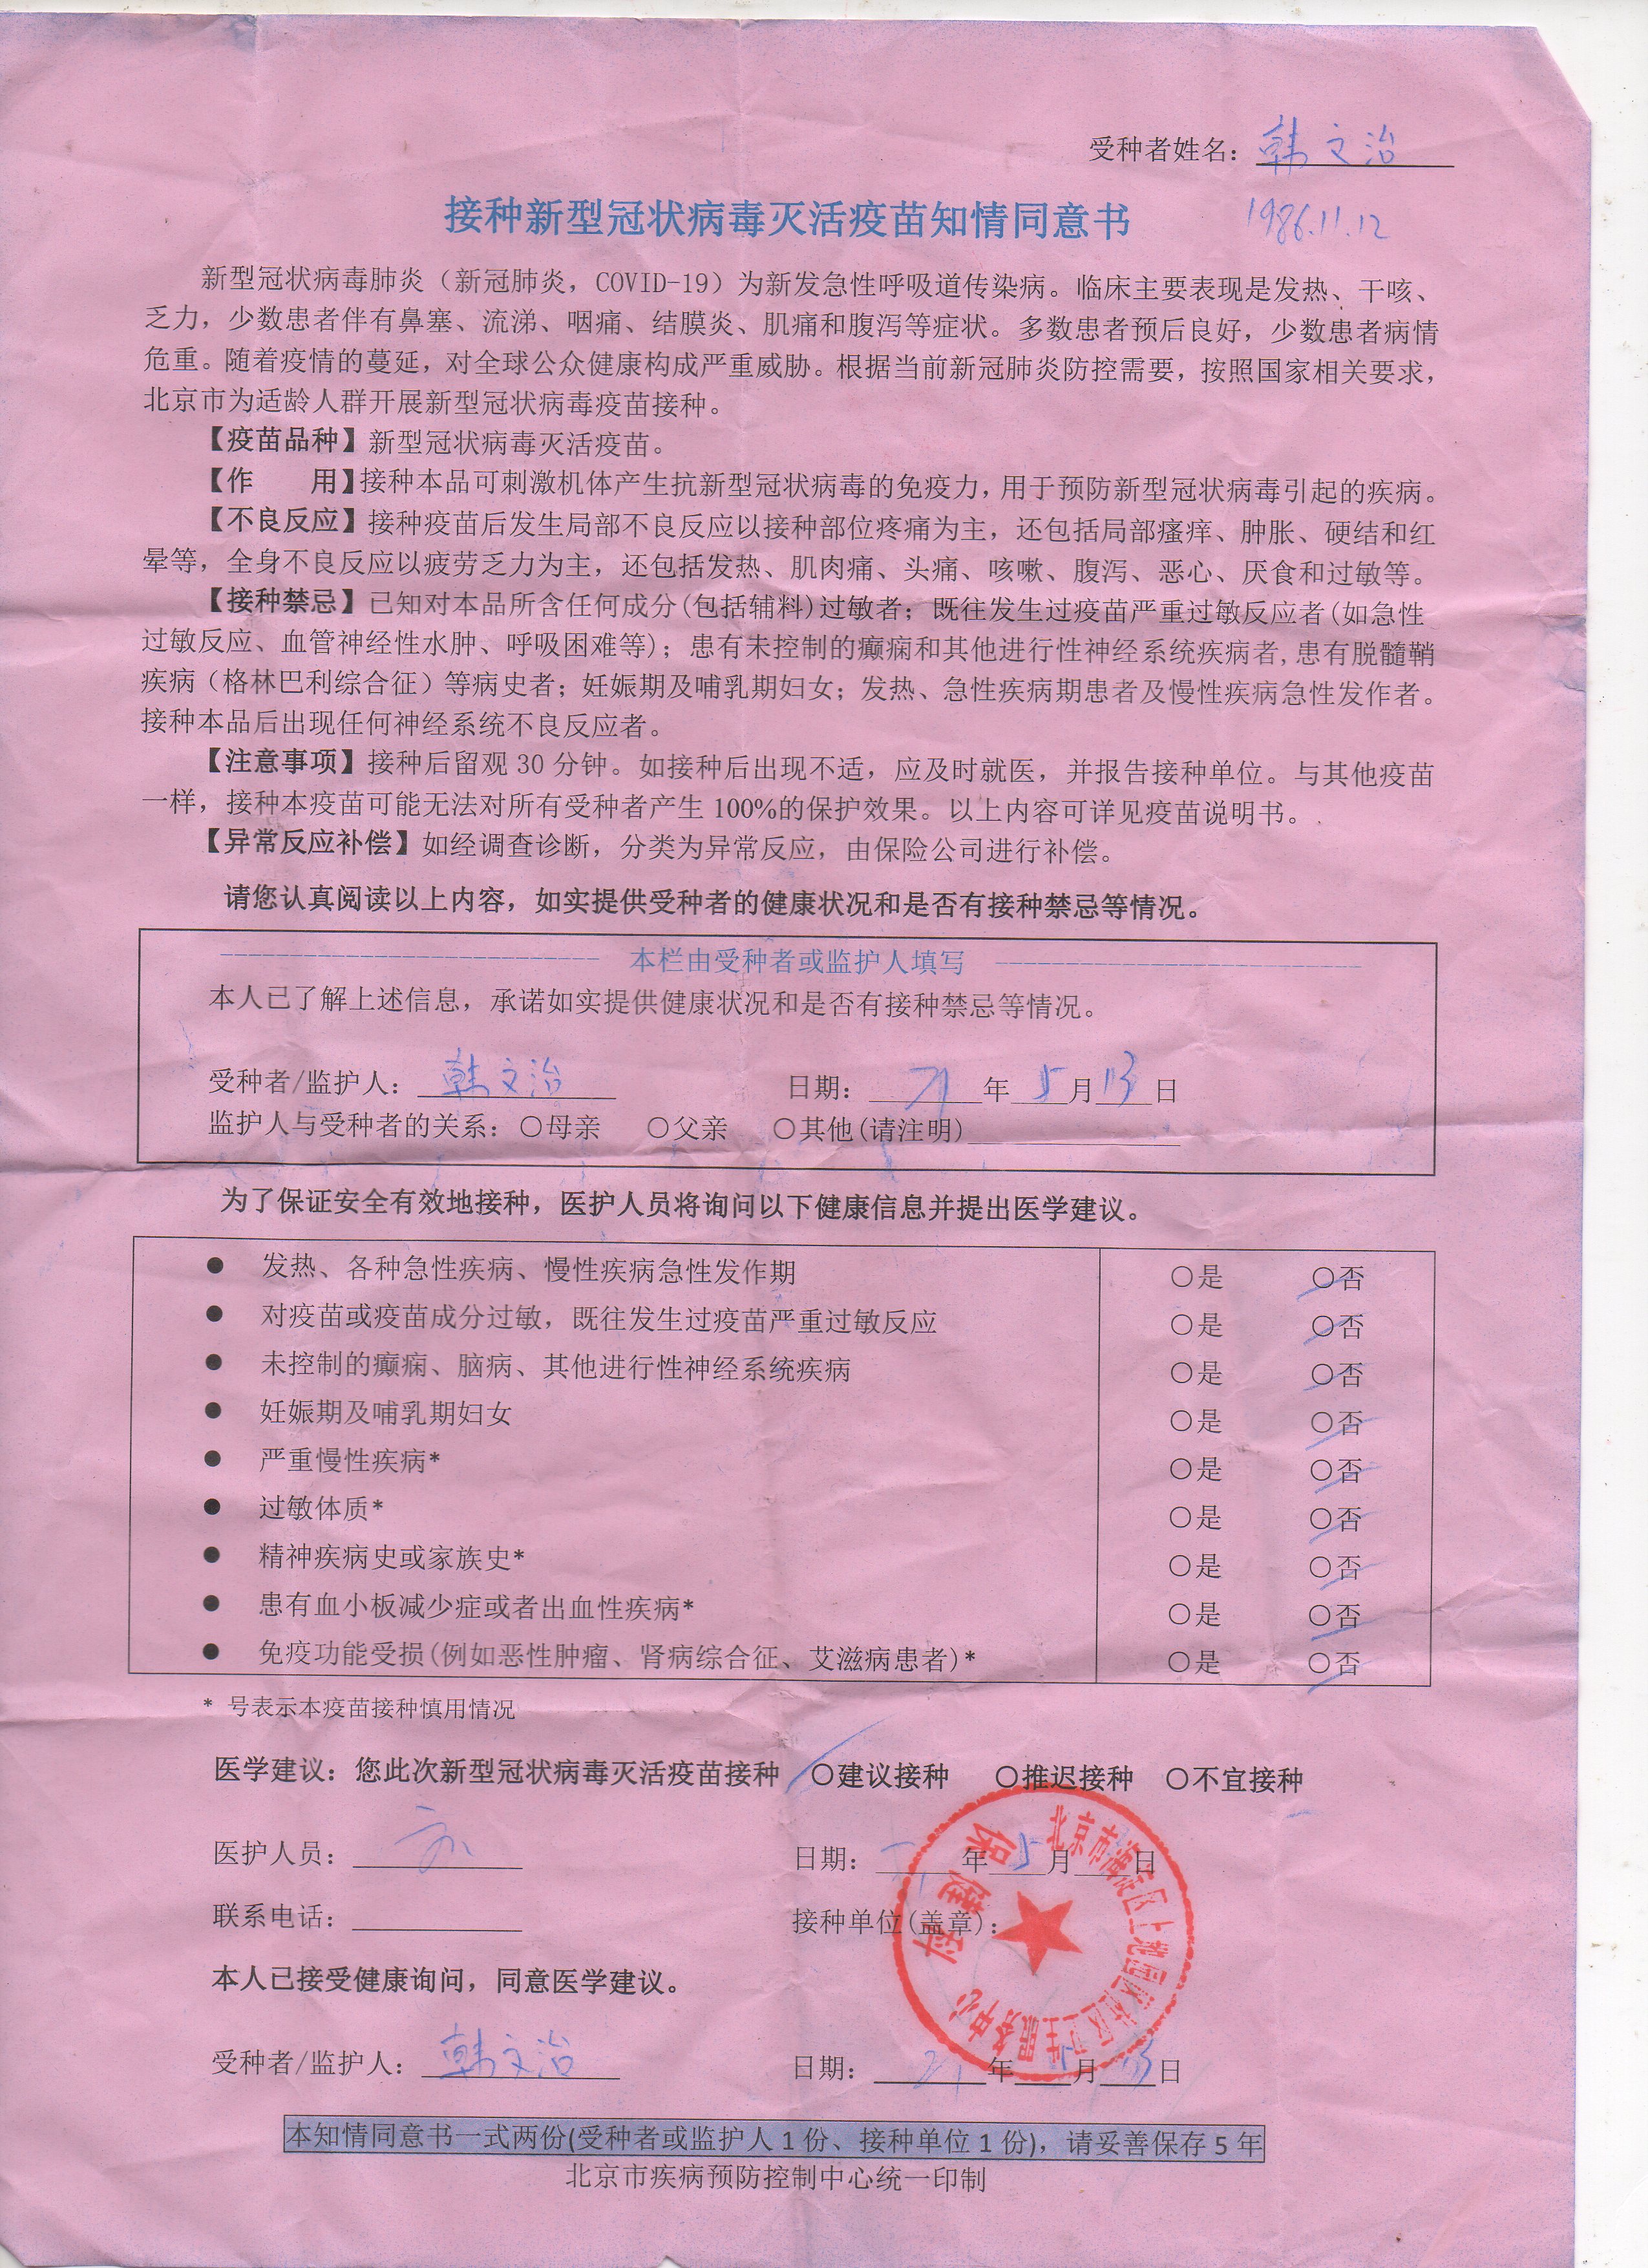 受种者姓名：韩文治
接种新型冠状病毒灭活疫苗知情同意书
1986.11.12
新型冠状病毒肺炎（新冠肺炎，COVID-19）为新发急性呼吸道传染病。临床主要表现是发热、干咳、
乏力，少数患者伴有鼻塞、流涕、咽痛、结膜炎、肌痛和腹泻等症状。多数患者预后良好，少数患者病情
危重。随着疫情的蔓延，对全球公众健康构成严重威胁。根据当前新冠肺炎防控需要，按照国家相关要求，
北京市为适龄人群开展新型冠状病毒疫苗接种。
【疫苗品种】新型冠状病毒灭活疫苗。
【作　　用】接种本品可刺激机体产生抗新型冠状病毒的免疫力，用于预防新型冠状病毒引起的疾病。
【不良反应】接种疫苗后发生局部不良反应以接种部位疼痛为主，还包括局部瘙痒、肿胀、硬结和红
晕等，全身不良反应以疲劳乏力为主，还包括发热、肌肉痛、头痛、咳嗽、腹泻、恶心、厌食和过敏等。
【接种禁忌】已知对本品所含任何成分(包括辅料)过敏者；既往发生过疫苗严重过敏反应者(如急性
过敏反应、血管神经性水肿、呼吸困难等)；患有未控制的癫痫和其他进行性神经系统疾病者,患有脱髓鞘
疾病（格林巴利综合征）等病史者；妊娠期及哺乳期妇女；发热、急性疾病期患者及慢性疾病急性发作者。
接种本品后出现任何神经系统不良反应者。
【注意事项】接种后留观 30 分钟。如接种后出现不适，应及时就医，并报告接种单位。与其他疫苗
一样，接种本疫苗可能无法对所有受种者产生 100%的保护效果。以上内容可详见疫苗说明书。
【异常反应补偿】如经调查诊断，分类为异常反应，由保险公司进行补偿。
请您认真阅读以上内容，如实提供受种者的健康状况和是否有接种禁忌等情况。
本栏由受种者或监护人填写
本人已了解上述信息，承诺如实提供健康状况和是否有接种禁忌等情况。
受种者/监护人：韩文治 日期：21年5月13日
监护人与受种者的关系：○母亲 ○父亲 ○其他(请注明)
为了保证安全有效地接种，医护人员将询问以下健康信息并提出医学建议。
● 发热、各种急性疾病、慢性疾病急性发作期 ○是 ○否
● 对疫苗或疫苗成分过敏，既往发生过疫苗严重过敏反应 ○是 ○否
● 未控制的癫痫、脑病、其他进行性神经系统疾病 ○是 ○否
● 妊娠期及哺乳期妇女 ○是 ○否
● 严重慢性疾病* ○是 ○否
● 过敏体质* ○是 ○否
● 精神疾病史或家族史* ○是 ○否
● 患有血小板减少症或者出血性疾病* ○是 ○否
● 免疫功能受损(例如恶性肿瘤、肾病综合征、艾滋病患者)* ○是 ○否
* 号表示本疫苗接种慎用情况
医学建议：您此次新型冠状病毒灭活疫苗接种 ○建议接种 ○推迟接种 ○不宜接种
医护人员： 日期： 年5月 日
联系电话： 接种单位(盖章)：
北京市海淀区上地园区社区卫生服务中心
保健科
本人已接受健康询问，同意医学建议。
受种者/监护人：韩文治 日期：21年5月13日
本知情同意书一式两份(受种者或监护人 1 份、接种单位 1 份)，请妥善保存 5 年
北京市疾病预防控制中心统一印制